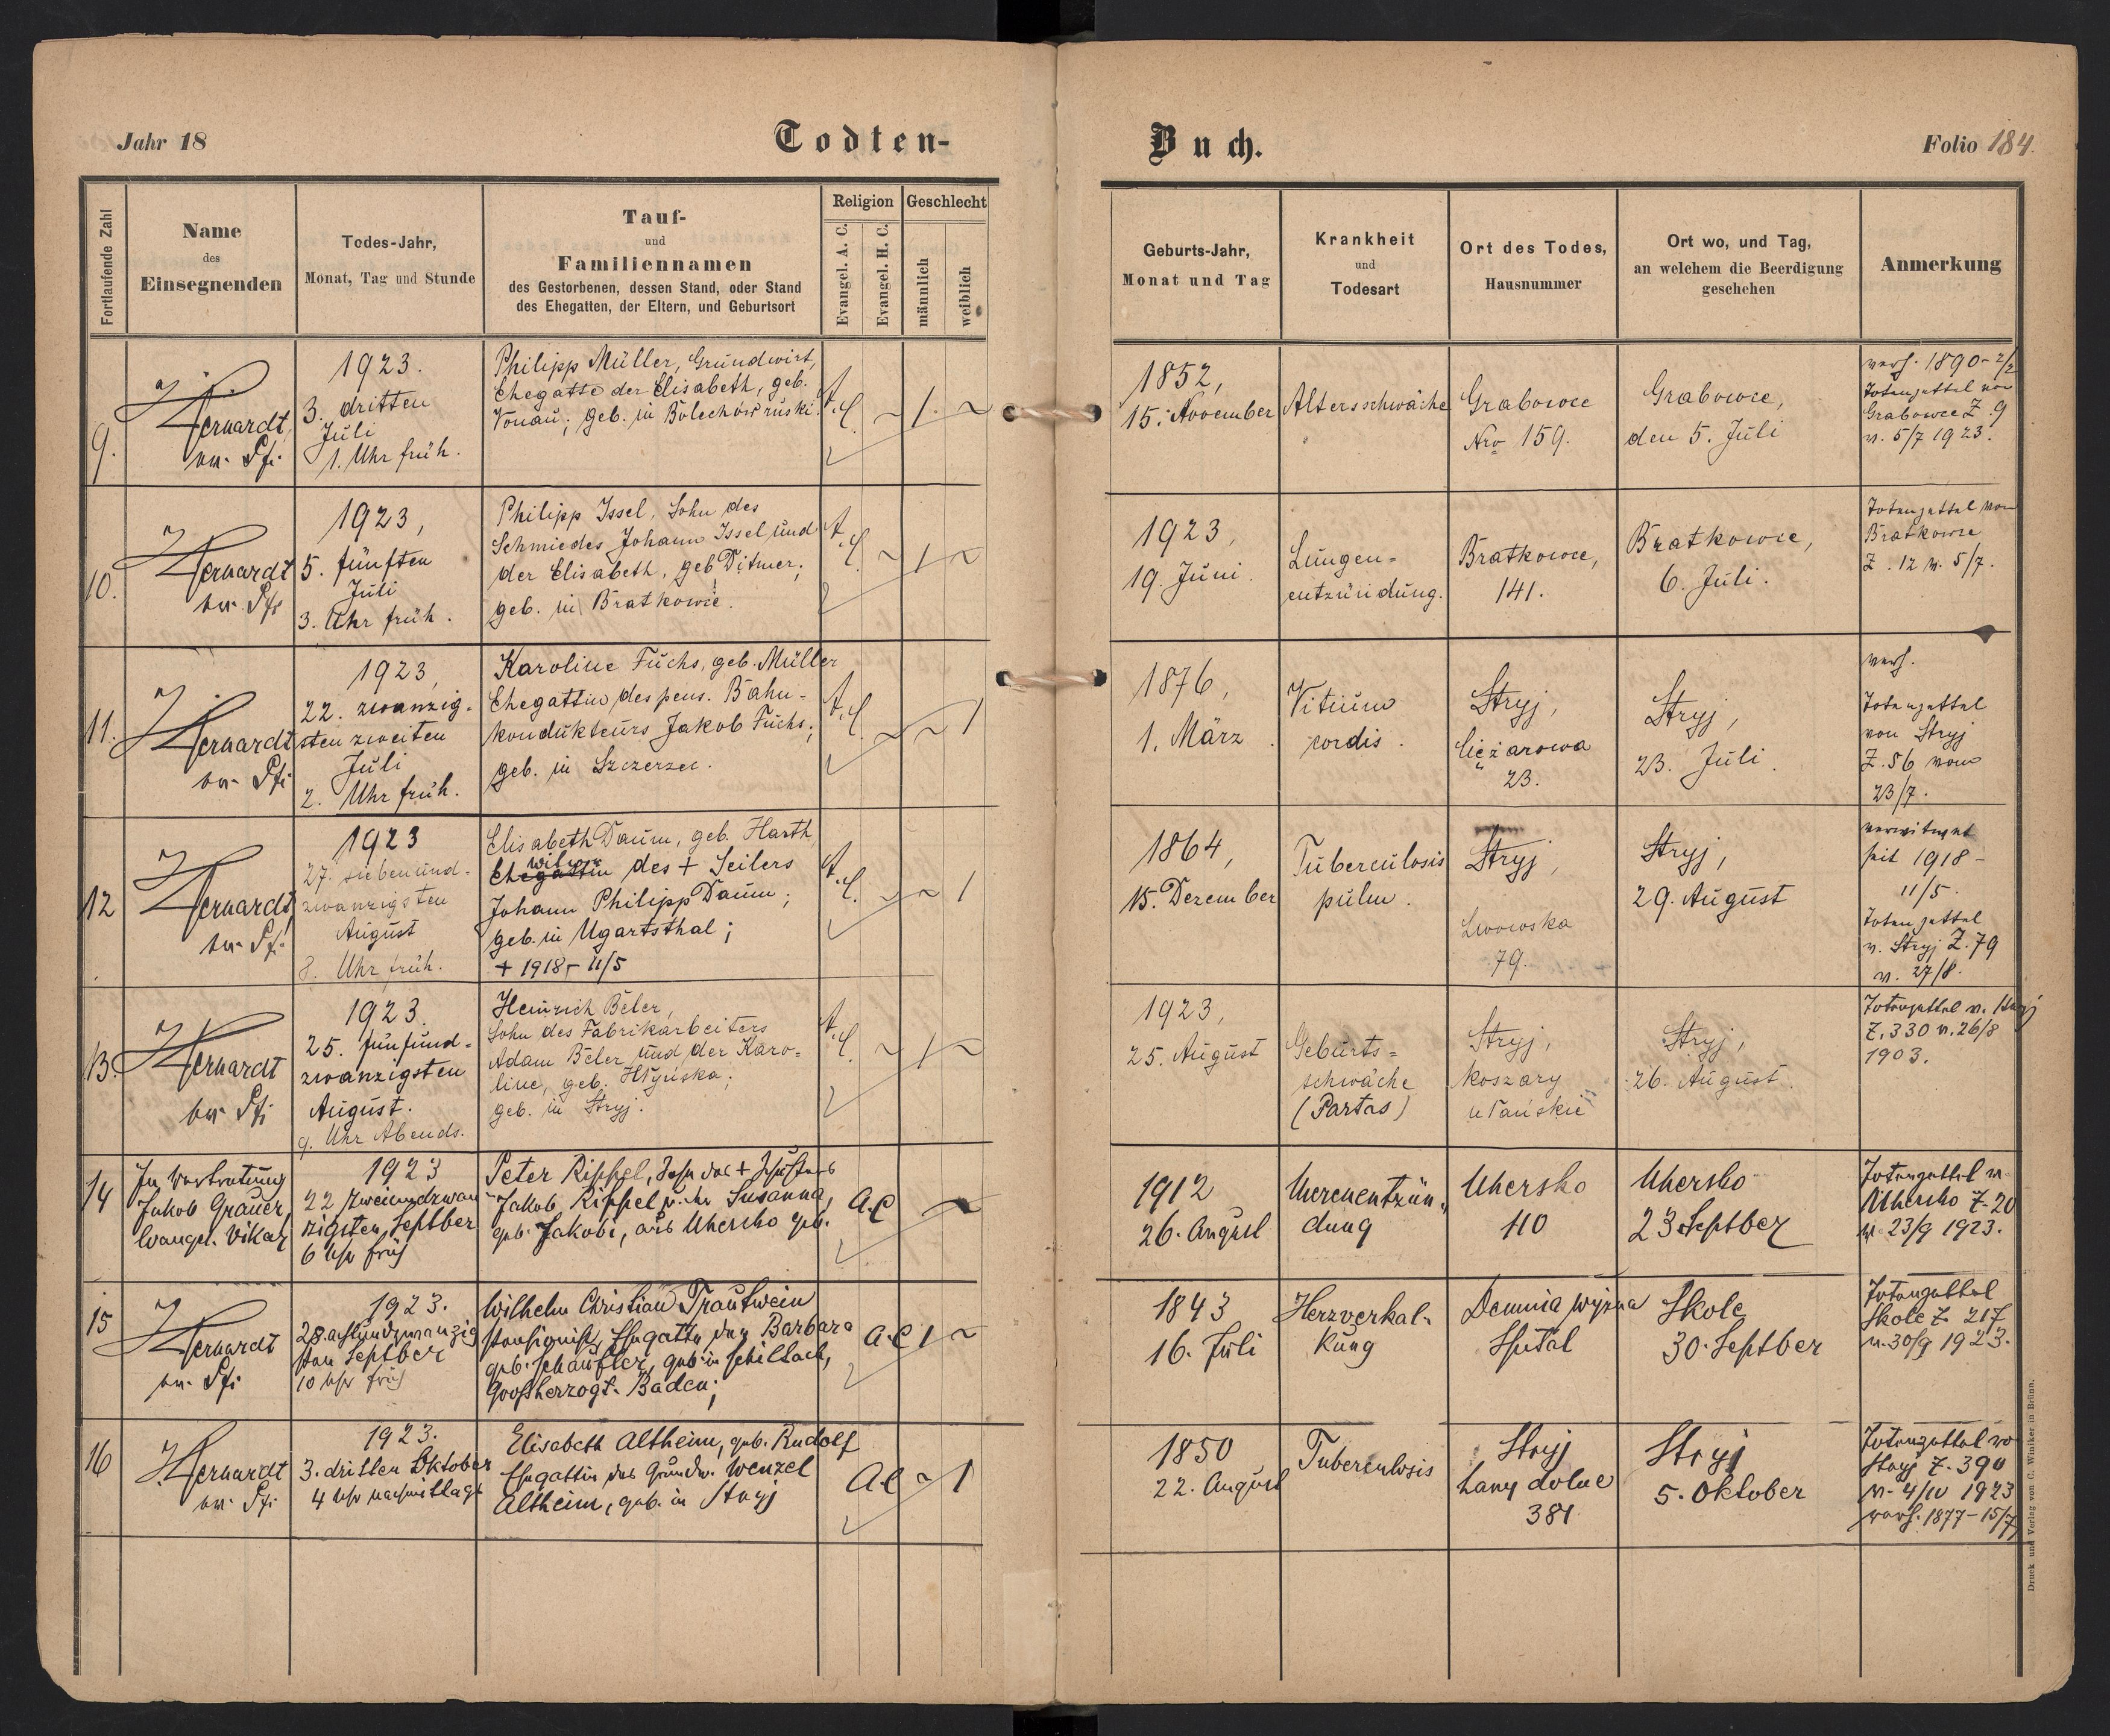 Jahr 18
Todten-
Buch.
Folio 184.
Fortlaufende Zahl
Name
des
Einsegnenden
Todes-Jahr,
Monat, Tag und Stunde
Tauf-
und
Familiennamen
des Gestorbenen, dessen Stand, oder Stand
des Ehegatten, der Eltern, und Geburtsort
Religion
Evangel. A. C.
Evangel. H. C.
Geschlecht
männlich
weiblich
Geburts-Jahr,
Monat und Tag
Krankheit
und
Todesart
Ort des Todes,
Hausnummer
Ort wo, und Tag,
an welchem die Beerdigung
geschehen
Anmerkung
9.
1923.
3. dritten
Juli
1. Uhr früh.
Philipp Müller, Grundwirt,
Ehegatte der Elisabeth, geb.
Vonau; geb. in Bolechów ruski.
A.C. ~ 1. ~
1852,
15. November
Altersschwäche
Grabowce
Nro 159.
Grabowce,
den 5. Juli
verh. 1890 - 2/2
Totenzettel von
Grabowce Z. 9
v. 5/7 1923.
10.
1923,
5. fünften
Juli
3. Uhr früh.
Philipp Issel, Sohn des
Schmiedes Johann Issel und
der Elisabeth, geb Ditmer;
geb. in Bratkowce.
A.C. ~ 1 ~
1923,
19. Juni.
Lungen=
entzündung.
Bratkowce,
141.
Bratkowce,
6. Juli.
Totenzettel von
Bratkowce
Z. 12 v. 5/7.
11.
1923,
22. zwanzig-
sten zweiten
Juli
2. Uhr früh.
Karoline Fuchs, geb. Müller
Ehegattin des pens. Bahn-
kondukteurs Jakob Fuchs;
geb. in Szczerzec.
A.C. ~ ~ 1
1876,
1. März.
Vitium
cordis.
Stryj,
Ciężarowa
23.
Stryj,
23. Juli.
verh.
Totenzettel
von Stryj
Z. 56 vom
23/7.
12
1923
27. siebenund-
zwanzigsten
August
8. Uhr früh.
Elisabeth Daum, geb. Harth,
Witwe
Ehegattin des + Seilers
Johann Philipp Daum;
geb. in Ugartsthal;
+ 1918 - 11/5
A.C. ~ ~ 1
1864,
15. Dezember
Tuberculosis
pulm.
Stryj,
Lwowska
79.
Stryj,
29. August
verwitwet
seit 1918 -
11/5.
Totenzettel
v. Stryj Z. 79
v. 27/8.
13.
1923.
25. fünfund=
zwanzigsten
August.
9. Uhr Abends.
Heinrich Beler,
Sohn des Fabrikarbeiters
Adam Beler und der Karo=
line, geb. Hłyńska;
geb. in Stryj.
A.C. ~ 1 ~
1923,
25. August
Geburts=
schwäche
(Partas)
Stryj,
koszary
ułańskie
Stryj,
26. August.
Totenzettel v. Stryj
Z. 330 v. 26/8
1903.
14
In Vertretung
Jakob Grauer,
Evangel. Vikar
1923
22 zweiundzwan
zigsten Septber
6 Uhr früh
Peter Rippel, Sohn des + Schusters
Jakob Rippel u. der Susanna,
geb. Jakobi, aus Uhersko geb.
A.C
1912
26. August
Nierenentzün-
dung
Uhersko
110
Uhersko
23 Septber
Totenzettel v.
Uhersko Z. 20
v. 23/9 1923.
15
1923.
28. achtundzwanzig
sten Septber
10 Uhr früh
Wilhelm Christian Trautwein
Pensionist, Ehegatte der Barbara
geb. Schäufler, geb. in Schiltach,
Grossherzogt. Baden;
A.C 1 ~
1843
16. Juli
Herzverkal-
kung
Demnia wyżna
Spital
Skole
30. Septber
Totenzettel
Skole Z 217
v. 30/9 1923.
16
1923.
3. dritten Oktober
4 Uhr nachmittags
Elisabeth Altheim, geb. Rudolf
Ehegattin des Grundw. Wenzel
Altheim, geb. in Stryj
A.C ~ 1
1850
22. August
Tuberculosis
Stryj
Łany dolne
381
Stryj
5. Oktober
Totenzettel vo
Stryj Z. 390
v. 4/10 1923
verh. 1877 - 15/7
Druck und Verlag von C. Winiker in Brünn.